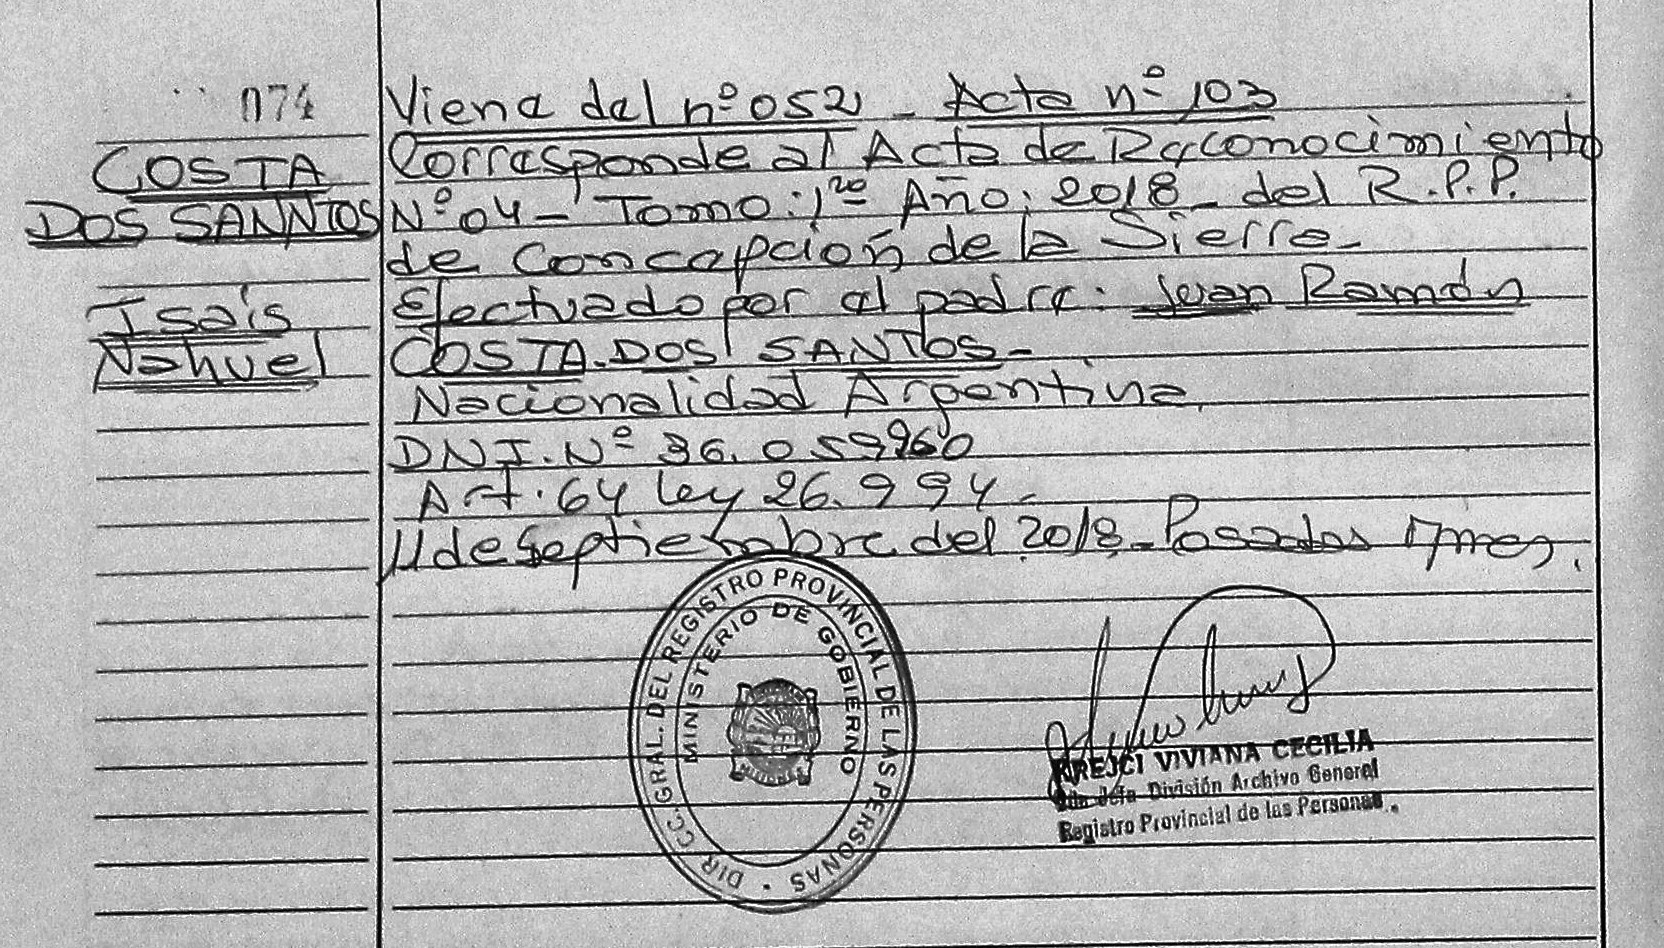 074
COSTA
DOS SANNTOS
Isaís
Nahuel
Viene del nº 052 - Acta nº 103
Corresponde al Acta de Reconocimiento
Nº 04 - Tomo: 1º Año: 2018 - del R.P.P.
de Concepción de la Sierra -
Efectuado por el padre: Juan Ramón
COSTA DOS SANTOS -
Nacionalidad Argentina
DNI. Nº 36.059960
Art. 64 ley 26.994 -
11 de Septiembre del 2018 - Posadas Mnes.
DIR CC. GRAL. DEL REGISTRO PROVINCIAL DE LAS PERSONAS
MINISTERIO DE GOBIERNO
KREJCI VIVIANA CECILIA
Jefa División Archivo General
Registro Provincial de las Personas